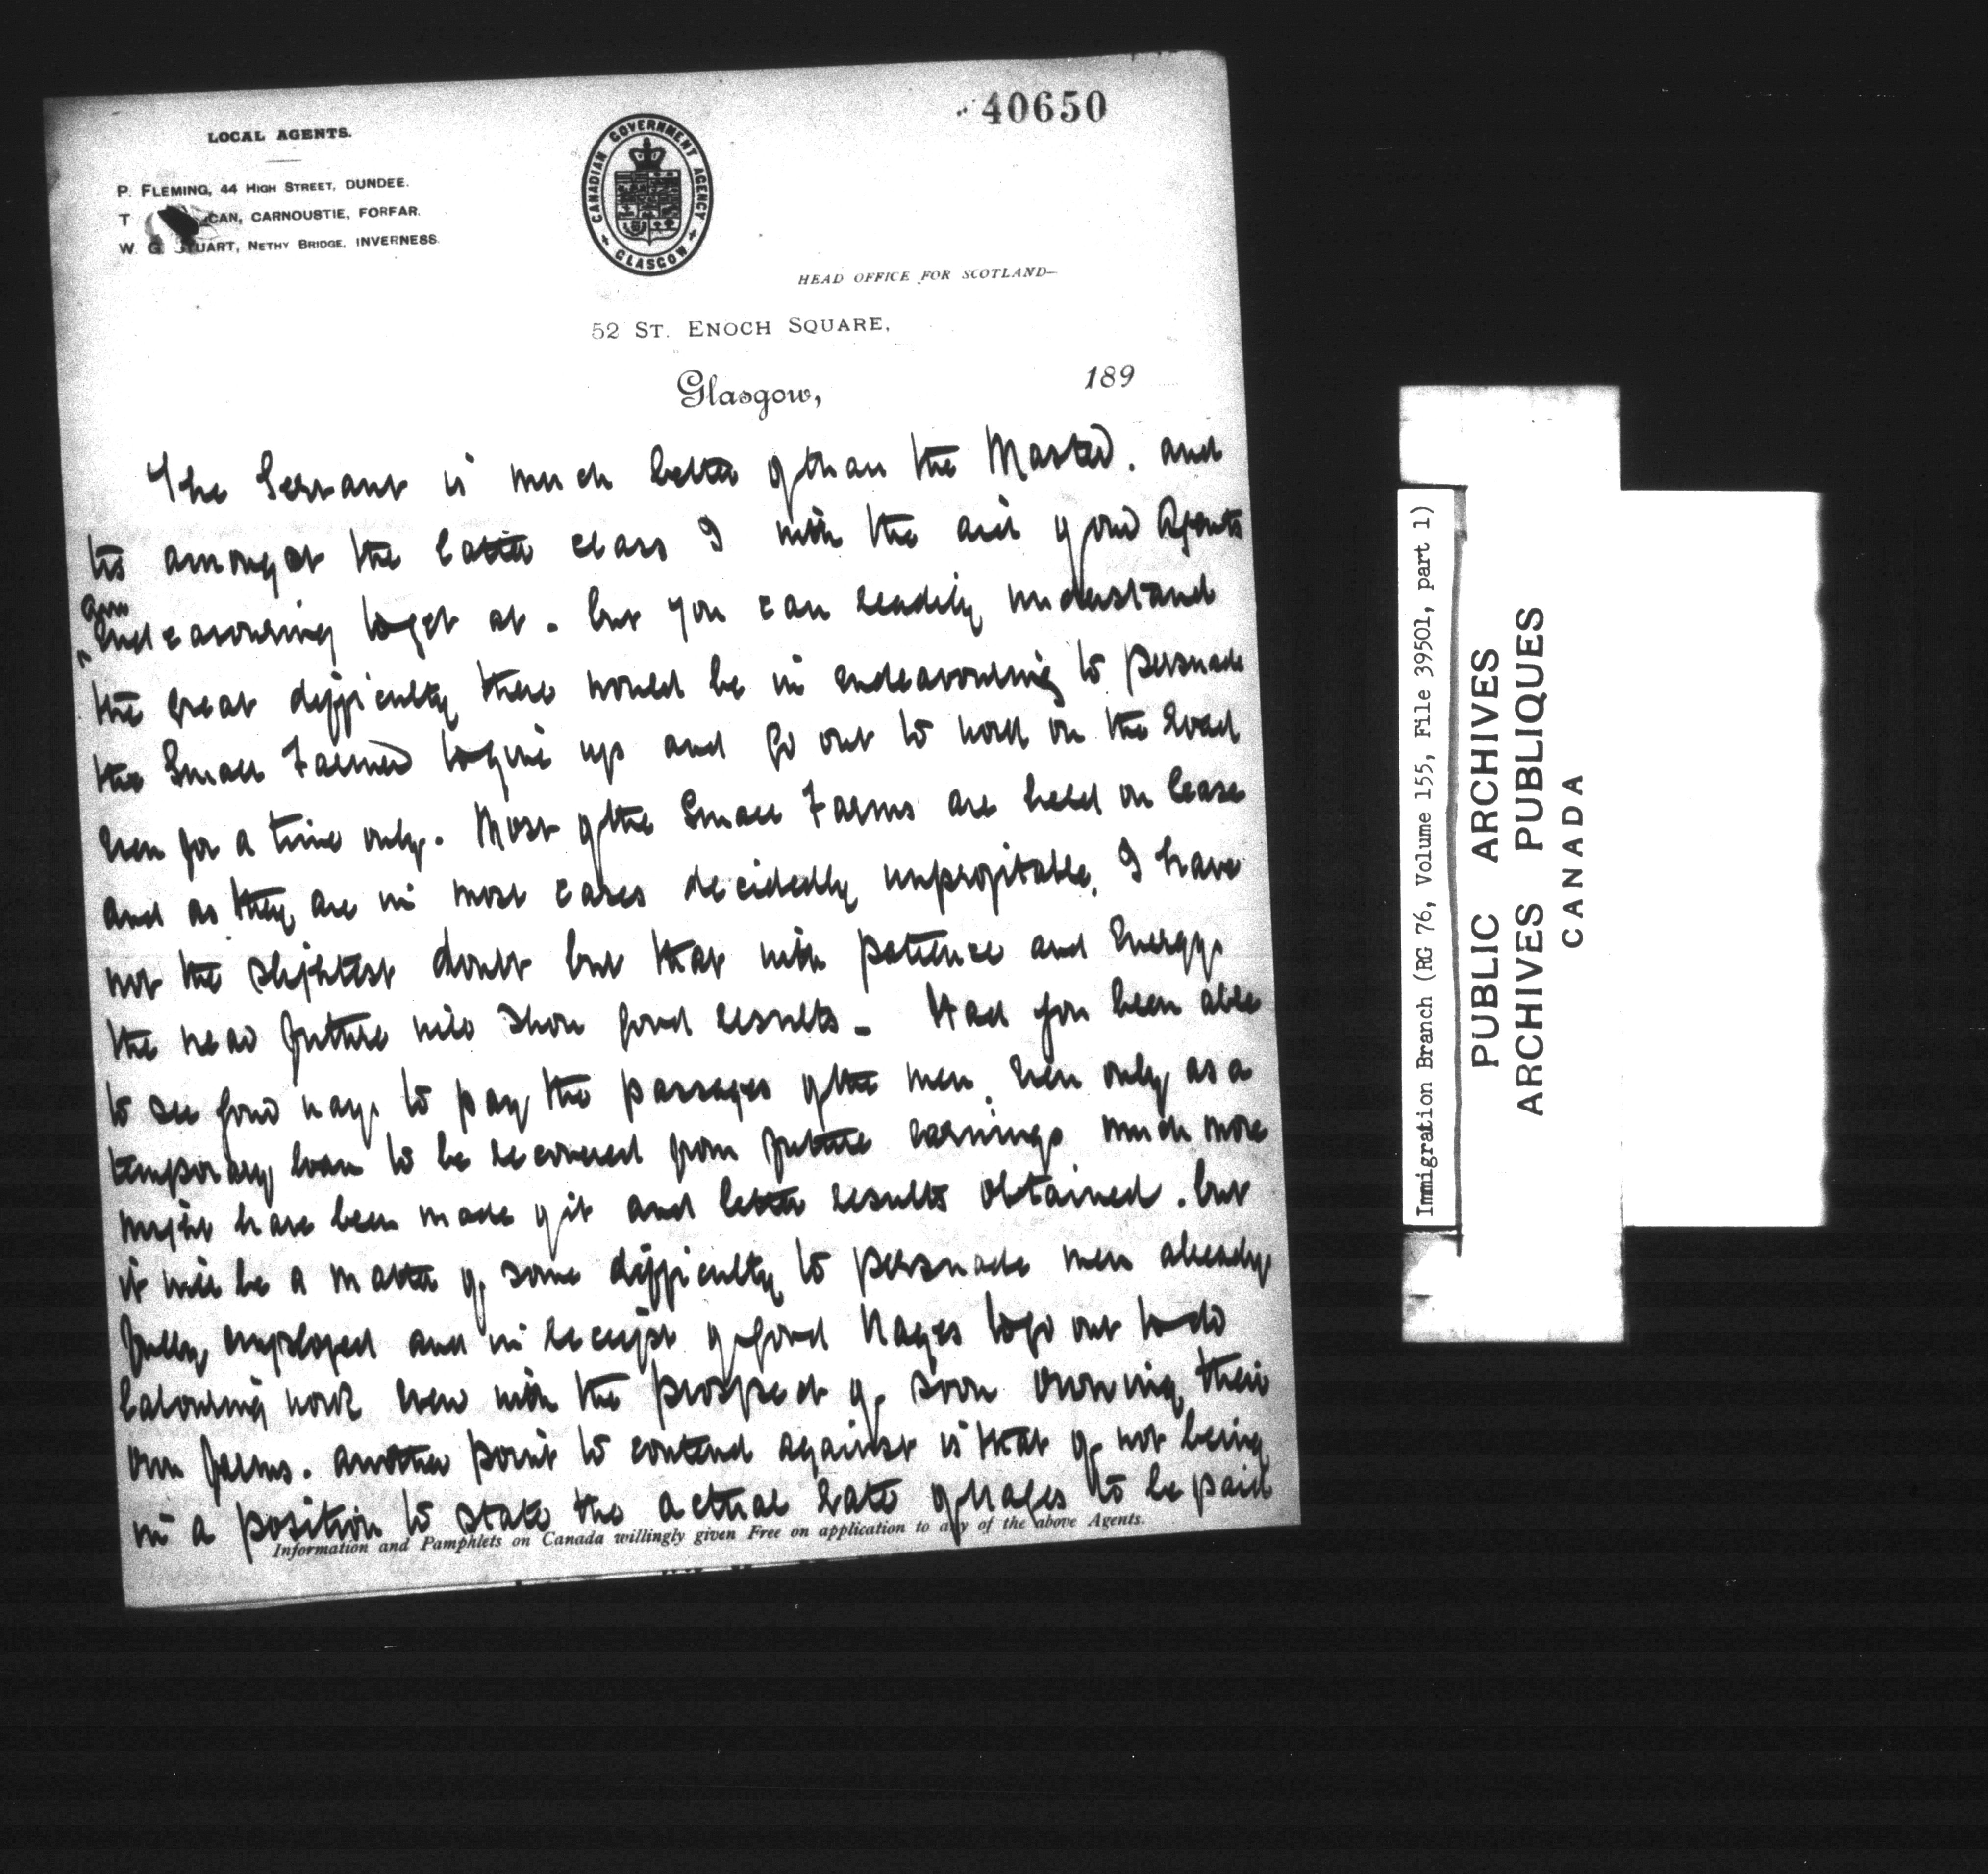 40650
LOCAL AGENTS.
P. FLEMING, 44 HIGH STREET, DUNDEE.
T CAN, CARNOUSTIE, FORFAR.
W. G. STUART, NETHY BRIDGE, INVERNESS.
CANADIAN GOVERNMENT AGENCY
GLASGOW
HEAD OFFICE FOR SCOTLAND—
52 ST. ENOCH SQUARE,
Glasgow, 189
The Servant is much better off than the Master. and
tis amongst the latter class I with the aid of our Agents
am
endeavouring to get at. but you can readily understand
the great difficulty there would be in endeavouring to persuade
the Small Farmer to give up and Go out to work on the road
even for a time only. Most of the Small Farms are held on lease
and as they are in most cases decidedly unprofitable, I have
not the slightest doubt but that with patience and Energy
the near future will show good results – Had you been able
to see your way to pay the passages of the men, even only as a
temporary loan to be recovered from future earnings much more
might have been made of it and better results obtained. but
it will be a matter of some difficulty to persuade men already
fully employed and in receipt of good Wages to go out to do
labouring work even with the prospect of soon owning their
own farms. another point to contend against is that of not being
in a position to state the actual rate of wages to be paid
Information and Pamphlets on Canada willingly given Free on application to any of the above Agents.
Immigration Branch (RG 76, Volume 155, File 39501, part 1)
PUBLIC ARCHIVES
ARCHIVES PUBLIQUES
CANADA